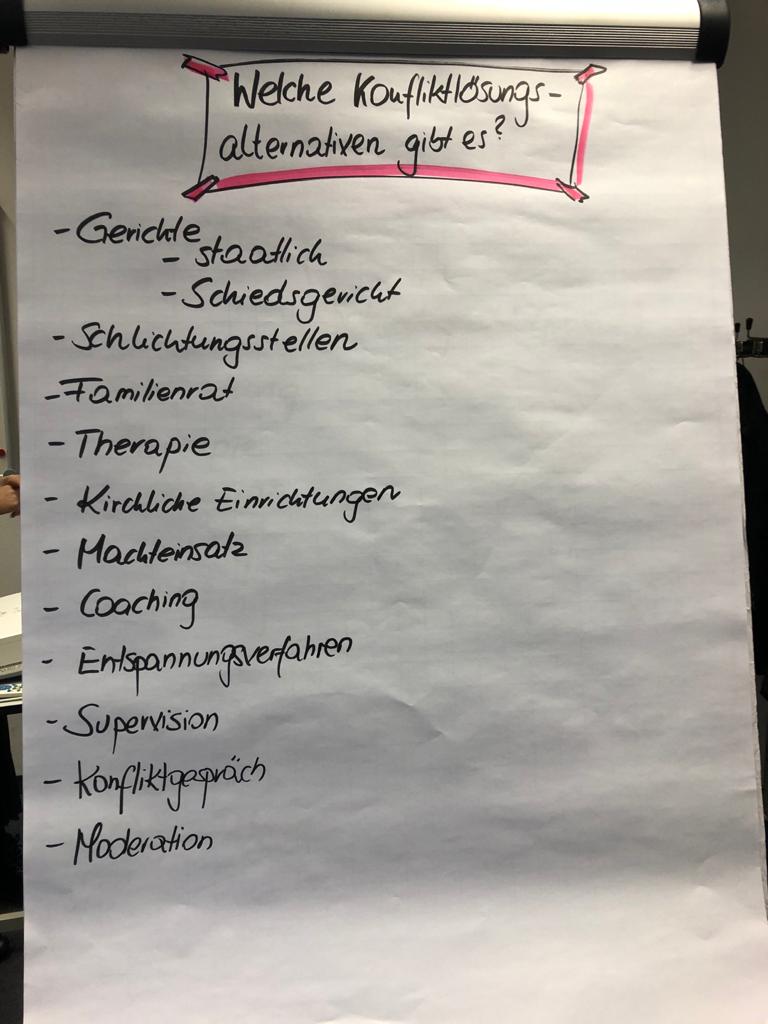 Welche Konfliktlösungs-
alternativen gibt es?
- Gerichte
- staatlich
- Schiedsgericht
- Schlichtungsstellen
- Familienrat
- Therapie
- Kirchliche Einrichtungen
- Machteinsatz
- Coaching
- Entspannungsverfahren
- Supervision
- Konfliktgespräch
- Moderation